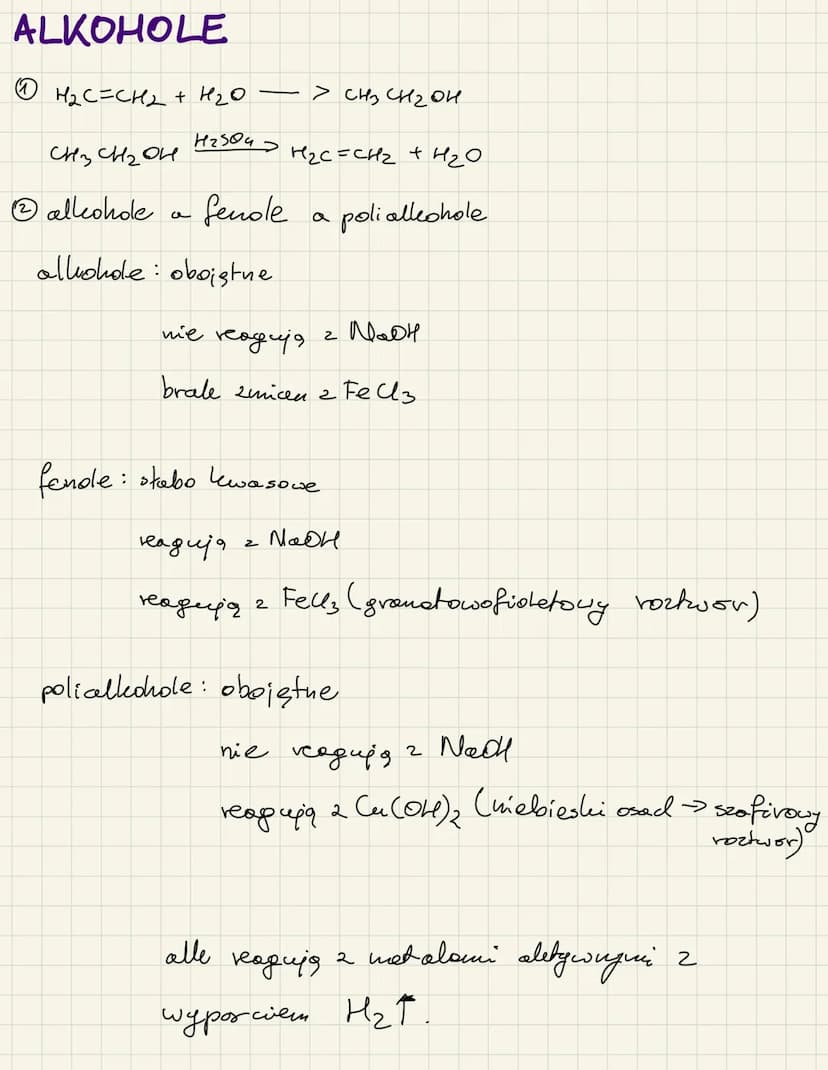 ALKOHOLE
① H₂C=CH₂ + H₂O —> CH₃CH₂OH
CH₃CH₂OH H₂SO₄→ H₂C=CH₂ + H₂O
② alkohole a fenole a polialkohole
alkohole: obojętne
nie reagują z NaOH
brak zmian z FeCl₃
fenole: słabo kwasowe
reagują z NaOH
reagują z FeCl₃ (granatowofioletowy roztwór)
polialkohole: obojętne
nie reagują z NaOH
reagują z Cu(OH)₂ (niebieski osad → szafirowy
roztwór)
alle reagują z metalami aktywnymi z
wyparciem H₂↑.